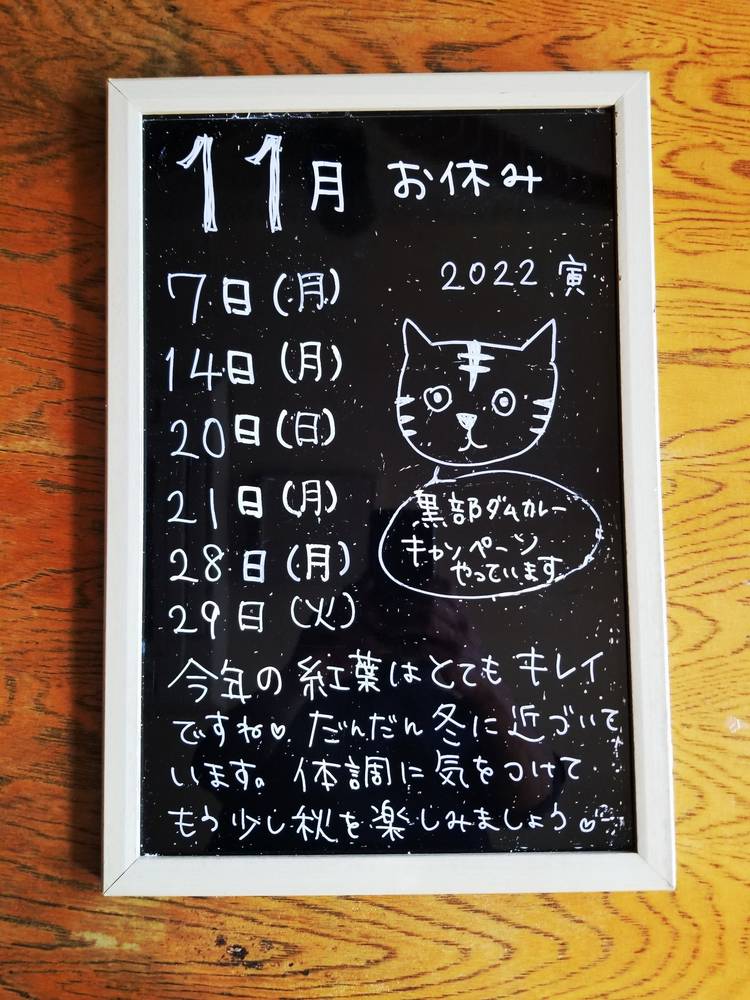 11月 お休み
2022 寅
7日(月)
14日(月)
20日(日)
21日(月)
28日(月)
29日(火)
黒部ダムカレー
キャンペーン
やっています
今年の紅葉はとてもキレイ
ですね♡ だんだん冬に近づいて
います。体調に気をつけて
もう少し秋を楽しみましょう♡